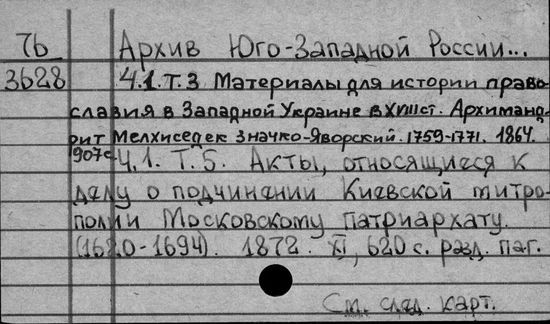 7б Архив Юго-Западной России...
3628 Ч.1. Т.3 Материалы для истории право-
славия в Западной Украине в XVIII ст. Архиманд-
рит Мелхиседек Значко-Яворский. 1759-1771. 1864.
907с Ч.1. Т.5. Акты, относящиеся к
делу о подчинении Киевской митро-
полии Московскому патриархату.
(1620-1694). 1872. XI, 620 с. разд. паг.
См. след. карт.